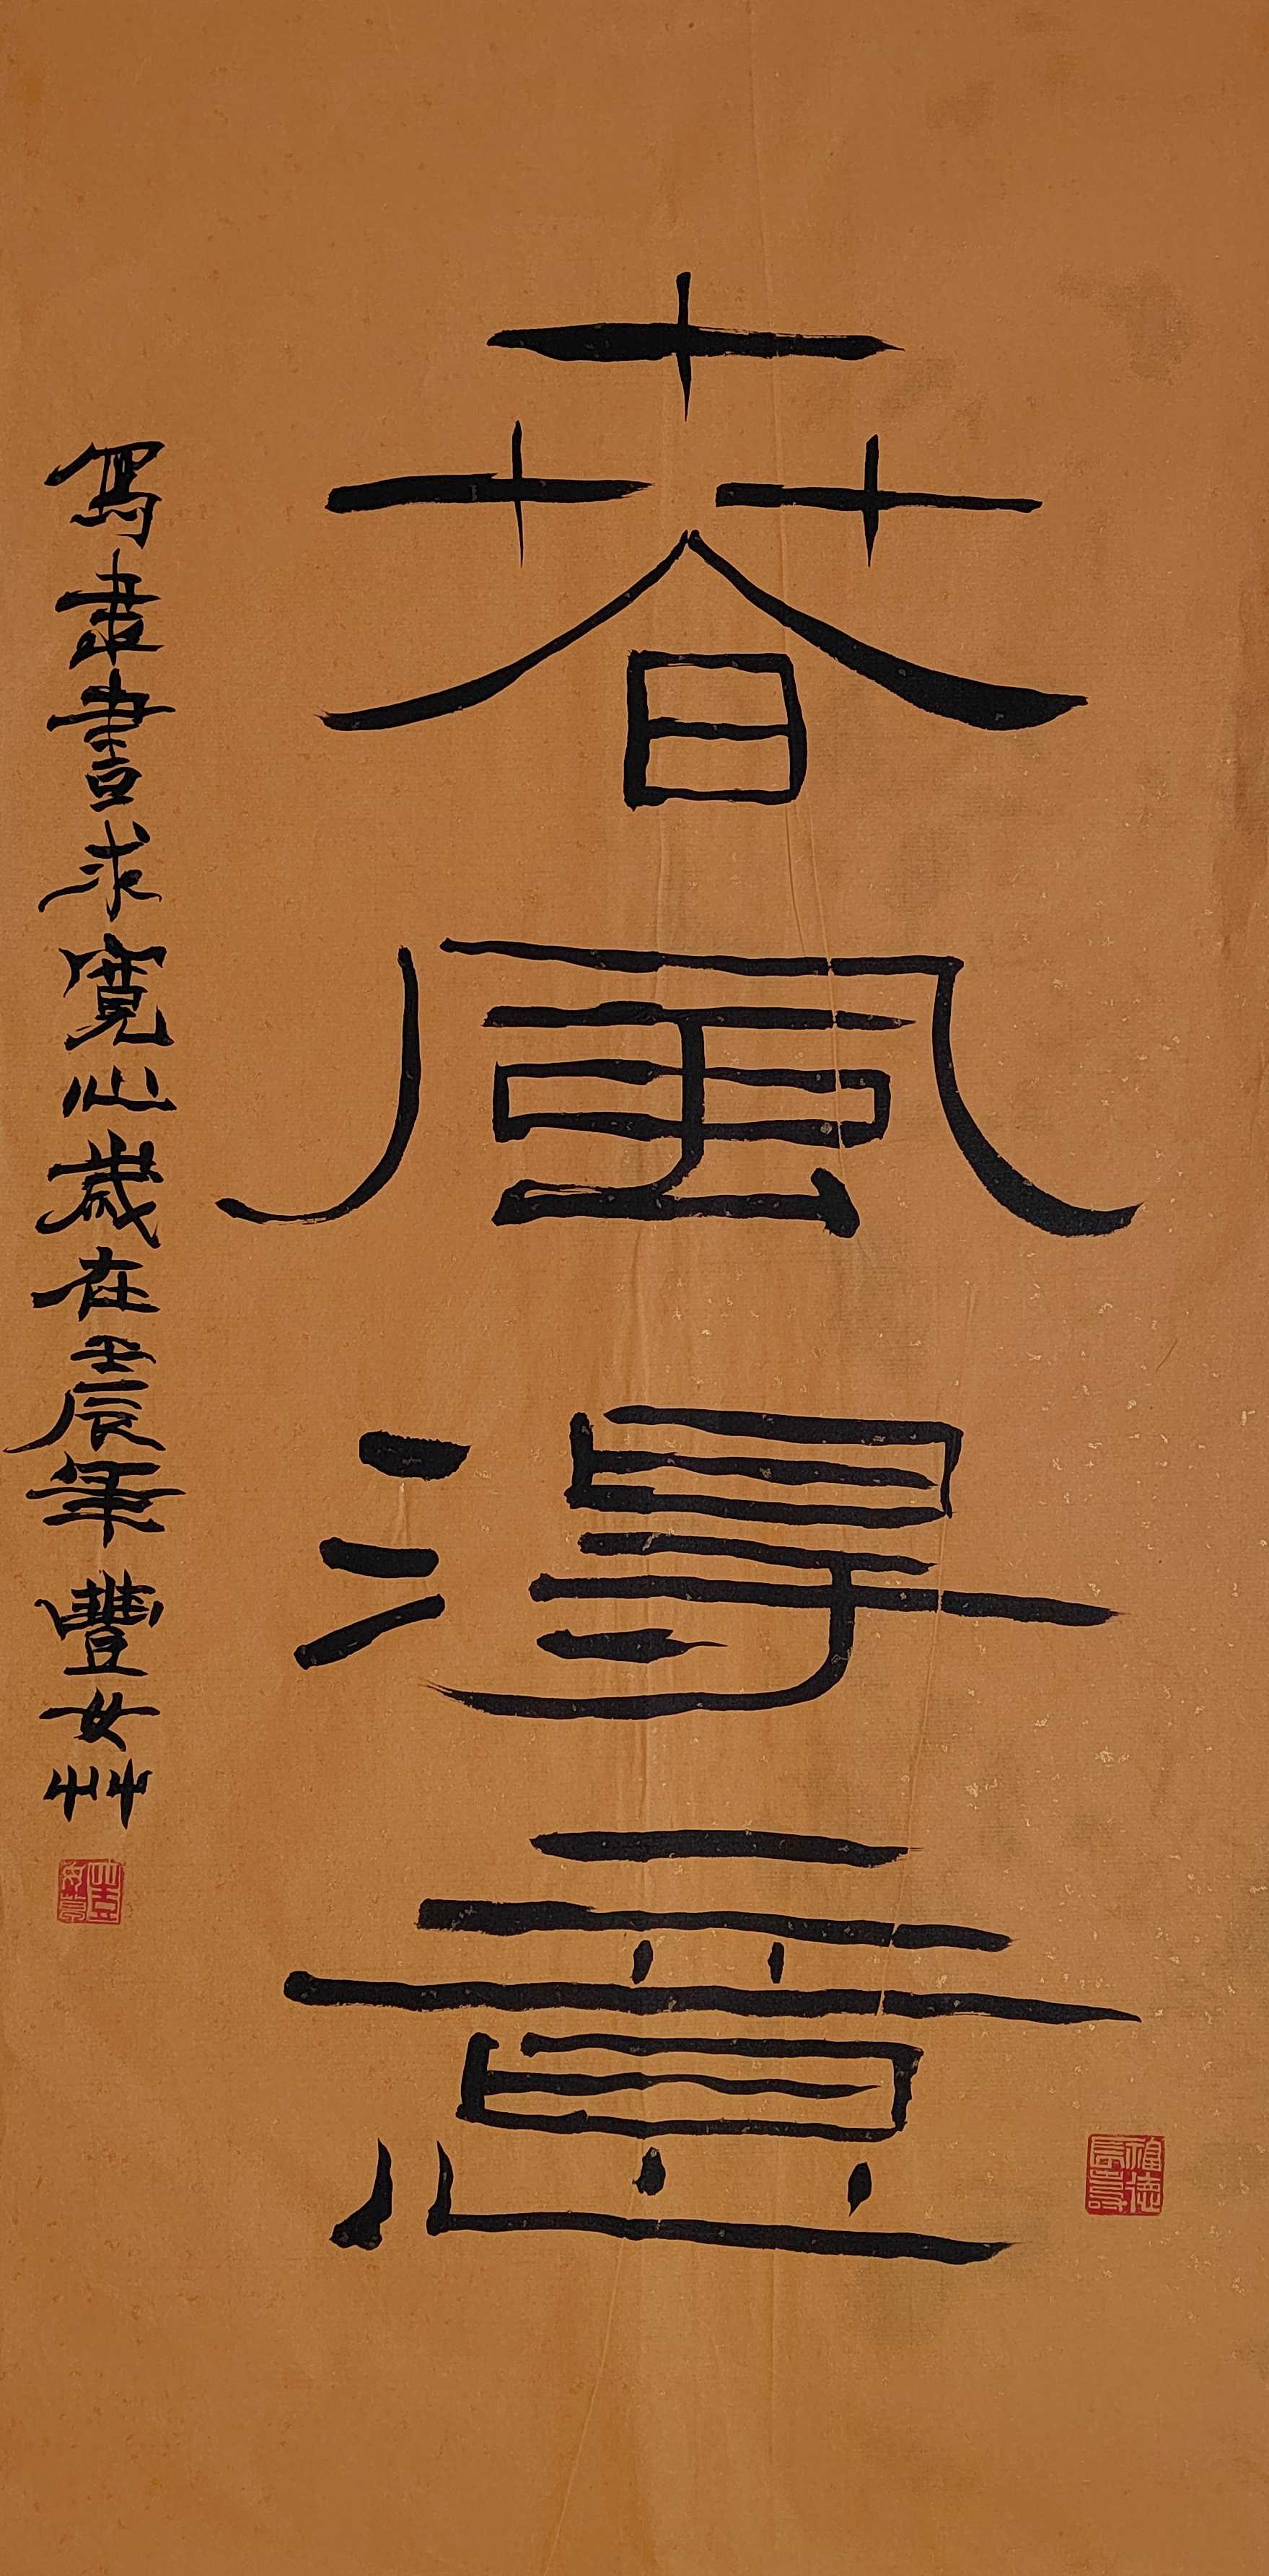 春風得意
寫隶書求寬心歲在壬辰年 豐女艸
福德長壽